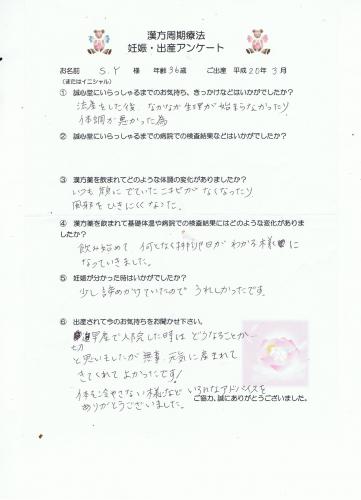 漢方周期療法
妊娠・出産アンケート
お名前 S.Y 様 年齢36歳 ご出産 平成20年3月
(またはイニシャル)
① 誠心堂にいらっしゃるまでのお気持ち、きっかけなどはいかがでしたか?
流産をした後 なかなか生理が始まらなかったり
体調が悪かった為
② 誠心堂にいらっしゃるまでの病院での検査結果などはいかがでしたか?
③ 漢方薬を飲まれてどのような体調の変化がありましたか?
いつも顔にでていたニキビがなくなったり
風邪をひきにくくなった。
④ 漢方薬を飲まれて基礎体温や病院での検査結果にはどのような変化がありま
したか?
飲み始めて 何となく排卵日がわかる様に
なっていきました。
⑤ 妊娠が分かった時はいかがでしたか?
少し諦めかけていたので うれしかったです。
⑥ 出産されて今のお気持ちをお聞かせ下さい。
切迫早産で入院した時は どうなることか
と思いましたが 無事 元気に産まれて
きてくれて よかったです!
体を冷やさない様になど いろいろなアドバイスを
ありがとうございました。
ご協力、誠にありがとうございました。